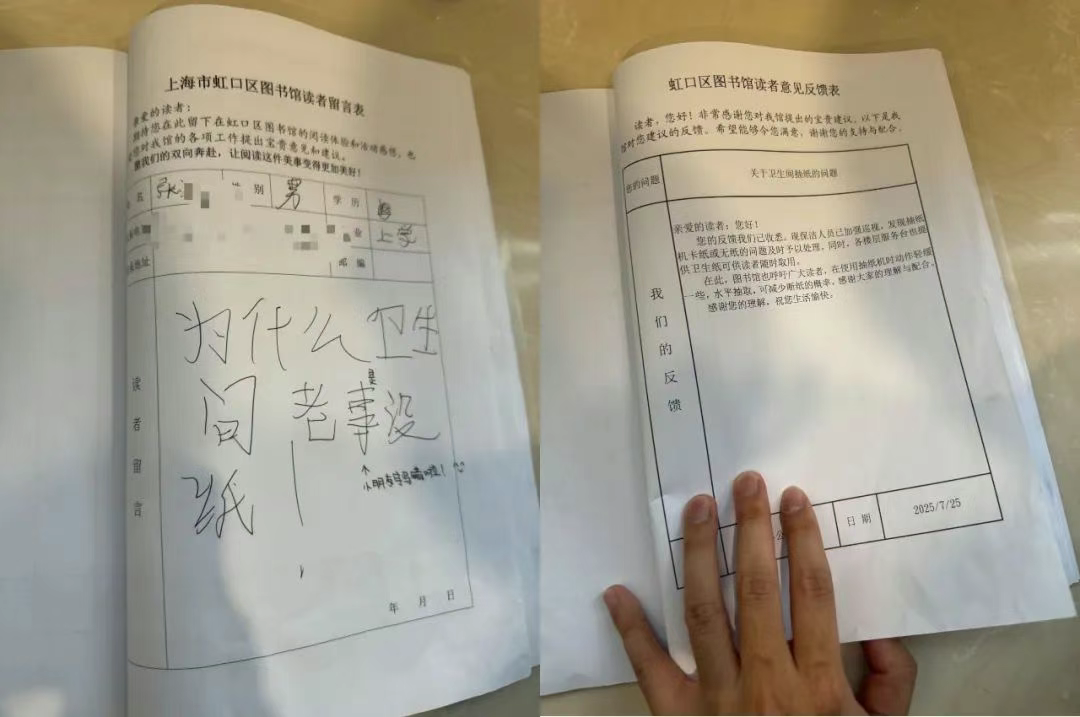 上海市虹口区图书馆读者留言表
亲爱的读者：
期待您在此留下在虹口区图书馆的阅读体验和活动感悟，也
您对我馆的各项工作提出宝贵意见和建议。
我们的双向奔赴，让阅读这件美事变得更加美好！
名 张 性别 男 学历
业 上学
地址 邮编
读者留言
为什么卫生
间老事没
是
纸！
↑
小朋友
年 月 日
虹口区图书馆读者意见反馈表
读者，您好！非常感谢您对我馆提出的宝贵建议。以下是我
馆对您建议的反馈。希望能够令您满意，谢谢您的支持与配合。
您的问题 关于卫生间抽纸的问题
我们的反馈
亲爱的读者：您好！
您的反馈我们已收悉。现保洁人员已加强巡视，发现抽纸
机卡纸或无纸的问题及时予以处理，同时，各楼层服务台也提
供卫生纸可供读者随时取用。
在此，图书馆也呼吁广大读者，在使用抽纸机时动作轻缓
一些，水平抽取，可减少断纸的概率。感谢大家的理解与配合。
感谢您的理解，祝您生活愉快！
日期 2025/7/25